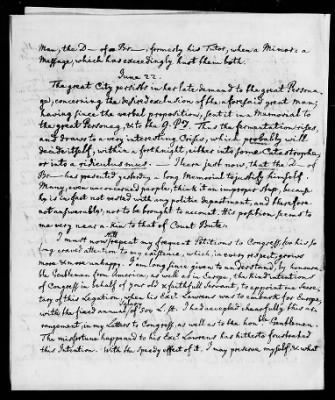 Man, the D— of Br—; formerly his Tutor, when a Minor: a
Message, which has exceedingly hurt them both.
June 22.
The great City persists in her late demand to the great Persona-
ge, concerning the desired exclusion of the aforesaid great man;
having since the verbal proposition, sent it in a Memorial to
the great Personage, & to the G. P. Thus the fermentation rises,
and draws to a very interesting Crisis, which probably will
decide itself, within a forthnight, either into some Catastrophe,
or into a ridiculus mus. — I hear just now, that the D— of
Br— has presented yesterday a long Memorial to justify himself.
Many, even unconcerned people, think it an improper step, because
he is in fact not vested with any politic department, and therefore
not answerable, nor to be brought to account. His position seems to
me very near a-kin to that of Count Bute.
I must now still repeat my frequent Petitions to Congress, for his fo-
ring cares & attention to my existence, which in every respect, grows
more & more unhappy. I'm long since given to understand, by honoura-
ble Gentlemen from America, as well as in Europe, the kind intention
of Congress in behalf of your old & faithfull Servant, to appoint me Secre-
tary of this Legation, when his Exc.y Laurens was to embark for Europe,
with the fixed annual, of 500 L. St. I had accepted chearfully this ar-
rangement, in my Letters to Congress, as well as to the hon.ble Gentleman.
The misfortune happened to his Exc.y Laurens has hitherto frustrated
this Intention. With the speedy effect of it, I may preserve myself, & what